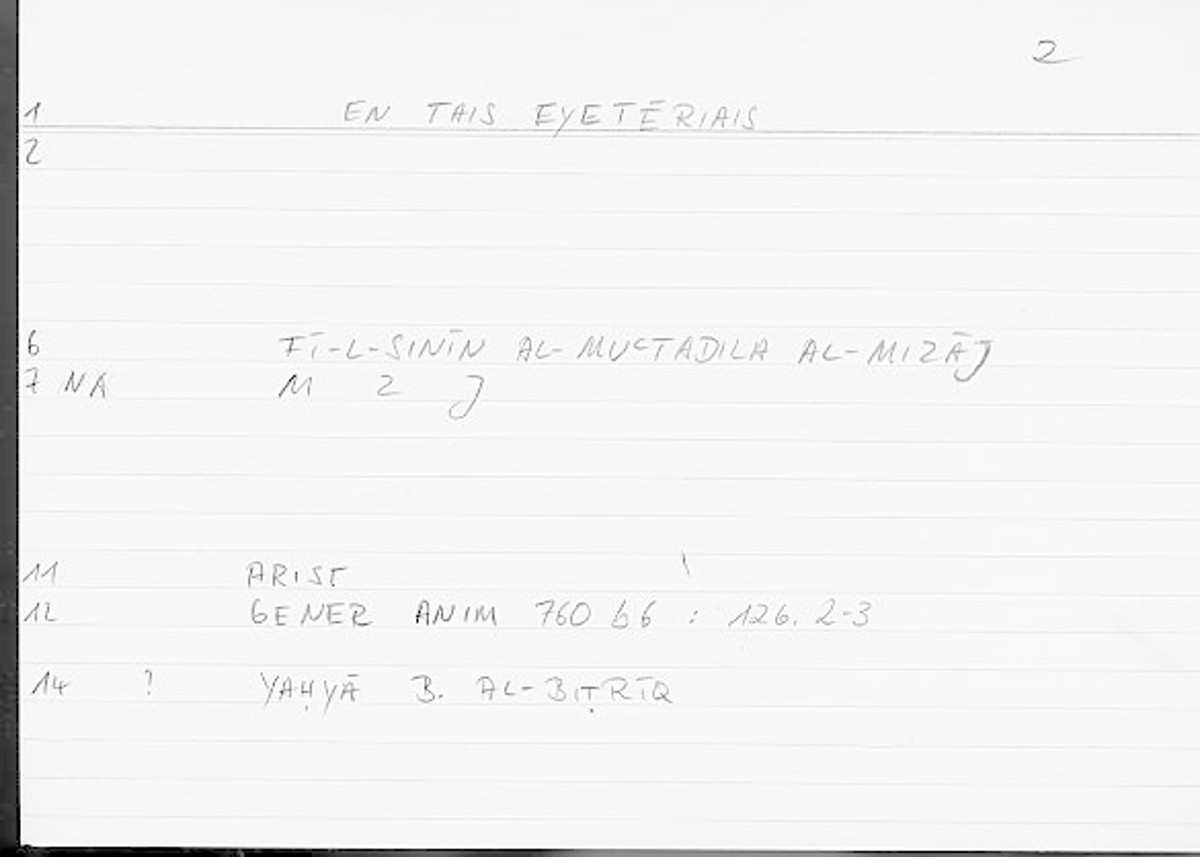 2
1 EN TAIS EYETĒRIAIS
2
6 FĪ-L-SINĪN AL-MUCTADILA AL-MIZĀJ
7 NA M Z J
11 ARIST
12 GENER ANIM 760 b6 : 126. 2-3
14 ? YAḤYĀ B. AL-BIṬRĪQ